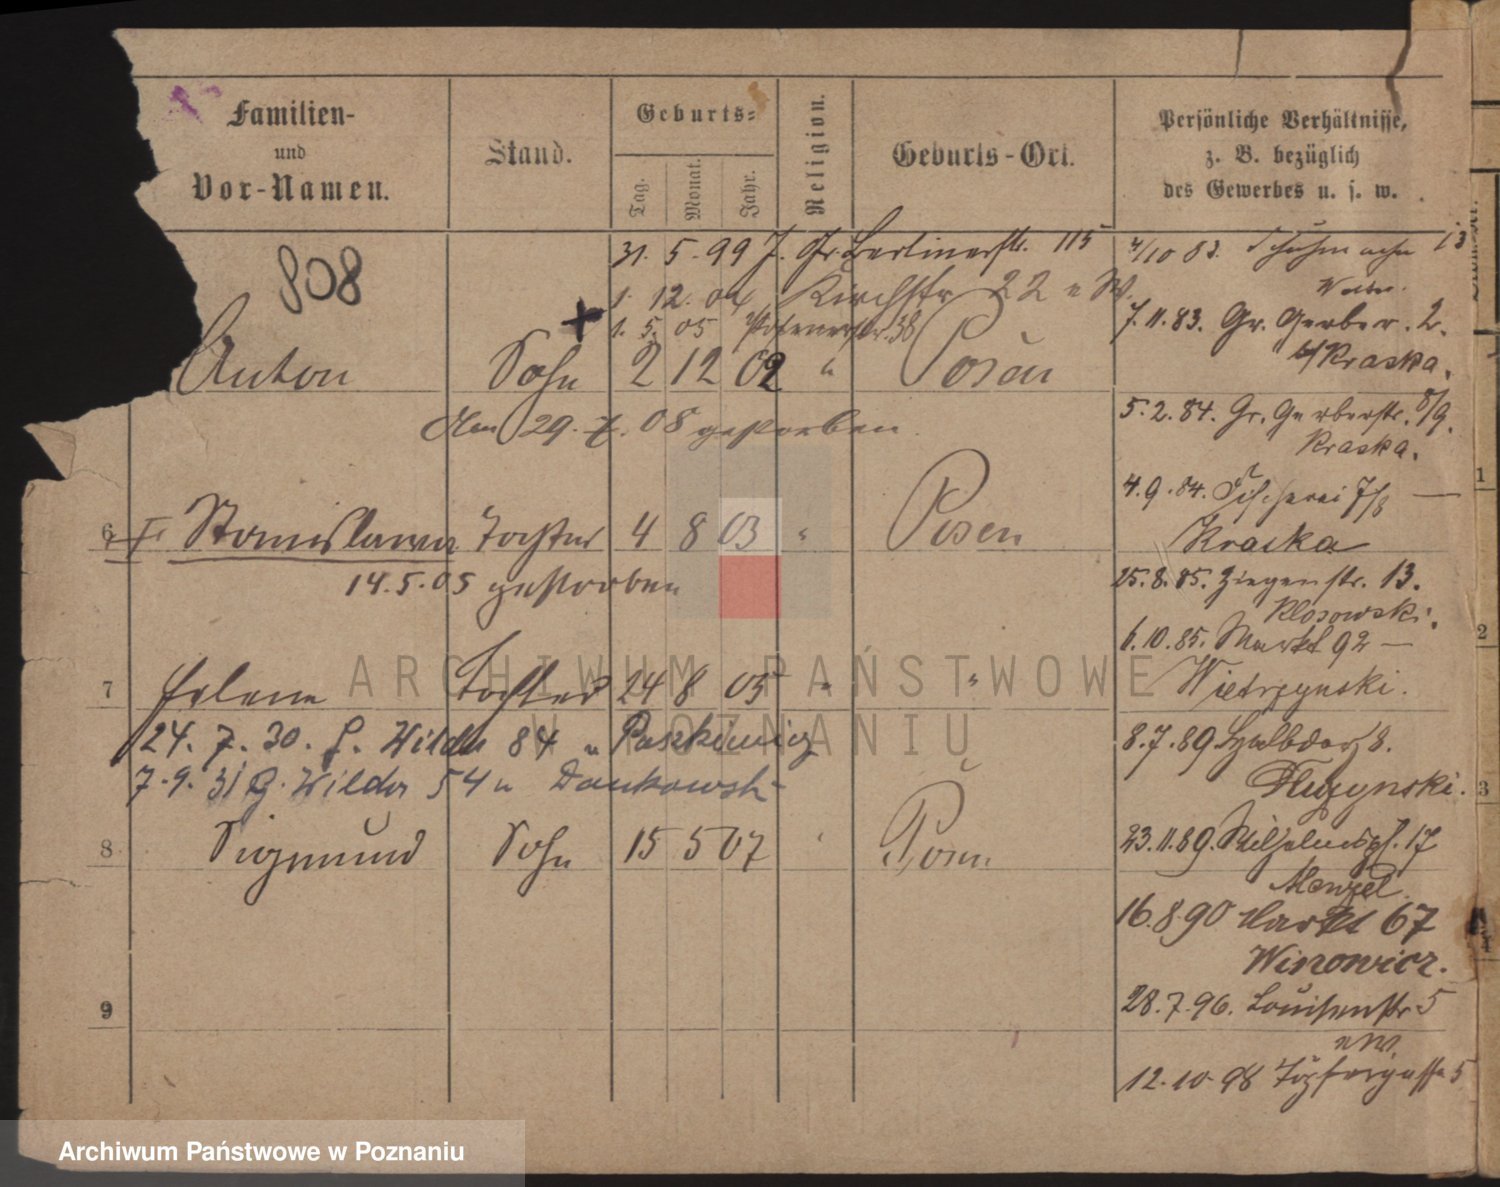 Familien-
und
Vor-Namen.
Stand.
Geburts-
Tag.
Monat.
Jahr.
Religion.
Geburts-Ort.
Persönliche Verhältnisse,
z. B. bezüglich
des Gewerbes u. s. w.
808
31. 5. 99 J. Gr. Berlinerstr. 115
1. 12. 04 Kirchstr 22 n W.
1. 5. 05 Posenerstr. 38
Anton Sohn 2 12 02 " Posen
den 29. 7. 08 gestorben.
6 Stanislawa Tochter 4 8 03 " Posen
14.5.05 gestorben
7 Helene Tochter 24 8 05 " "
24. 7. 30. G. Wilda 84 n
7. 9. 31 G. Wilda 54 n Dankowski
8 Sigmund Sohn 15 5 07 " Posen
9
4/10 83. 13
7. 11. 83. Gr. Gerber. 2.
b/Kraska.
5. 2. 84. Gr. Gerberstr. 8/9.
Kraska.
4. 9. 84. Fischerei 7/8 —
Kraska
25. 8. 85. Ziegenstr. 13.
Klosowski.
6. 10. 85. Markt 92 —
Wietrzynski.
8. 7. 89 8.
23. 11. 89. Wilhelmspl. 17
Menzel
16. 8 90 Markt 67
Winowicz.
28. 7. 96. Louisenstr 5
n W.
12. 10. 98 Töpfergasse 5
ARCHIWUM PAŃSTWOWE
W POZNANIU
1
2
3
Archiwum Państwowe w Poznaniu